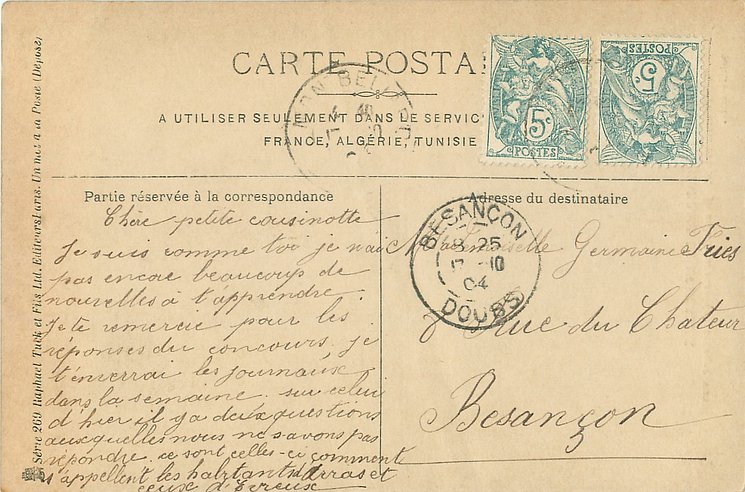 CARTE POSTA
A UTILISER SEULEMENT DANS LE SERVIC
FRANCE, ALGÉRIE, TUNISIE
5c
POSTES
5c
POSTES
Partie réservée à la correspondance
Chère petite cousinotte
Je suis comme toi je n'ai
pas encore beaucoup de
nouvelles à t'apprendre.
Je te remercie pour les
réponses du concours. je
t'enverrai les journaux
dans la semaine. sur celui
d'hier il y a deux questions
auxquelles nous ne savons pas
répondre. ce sont celles-ci comment
s'appellent les habitants d'Arras et
ceux d'Evreux
Adresse du destinataire
Mademoiselle Germaine
Rue du Chateur
Besançon
BESANÇON
8 25
17 -10
04
DOUBS
Série 269 Raphael Tuck et Fils Ltd. Editeurs Paris. Un mot à la Poste (Déposé)